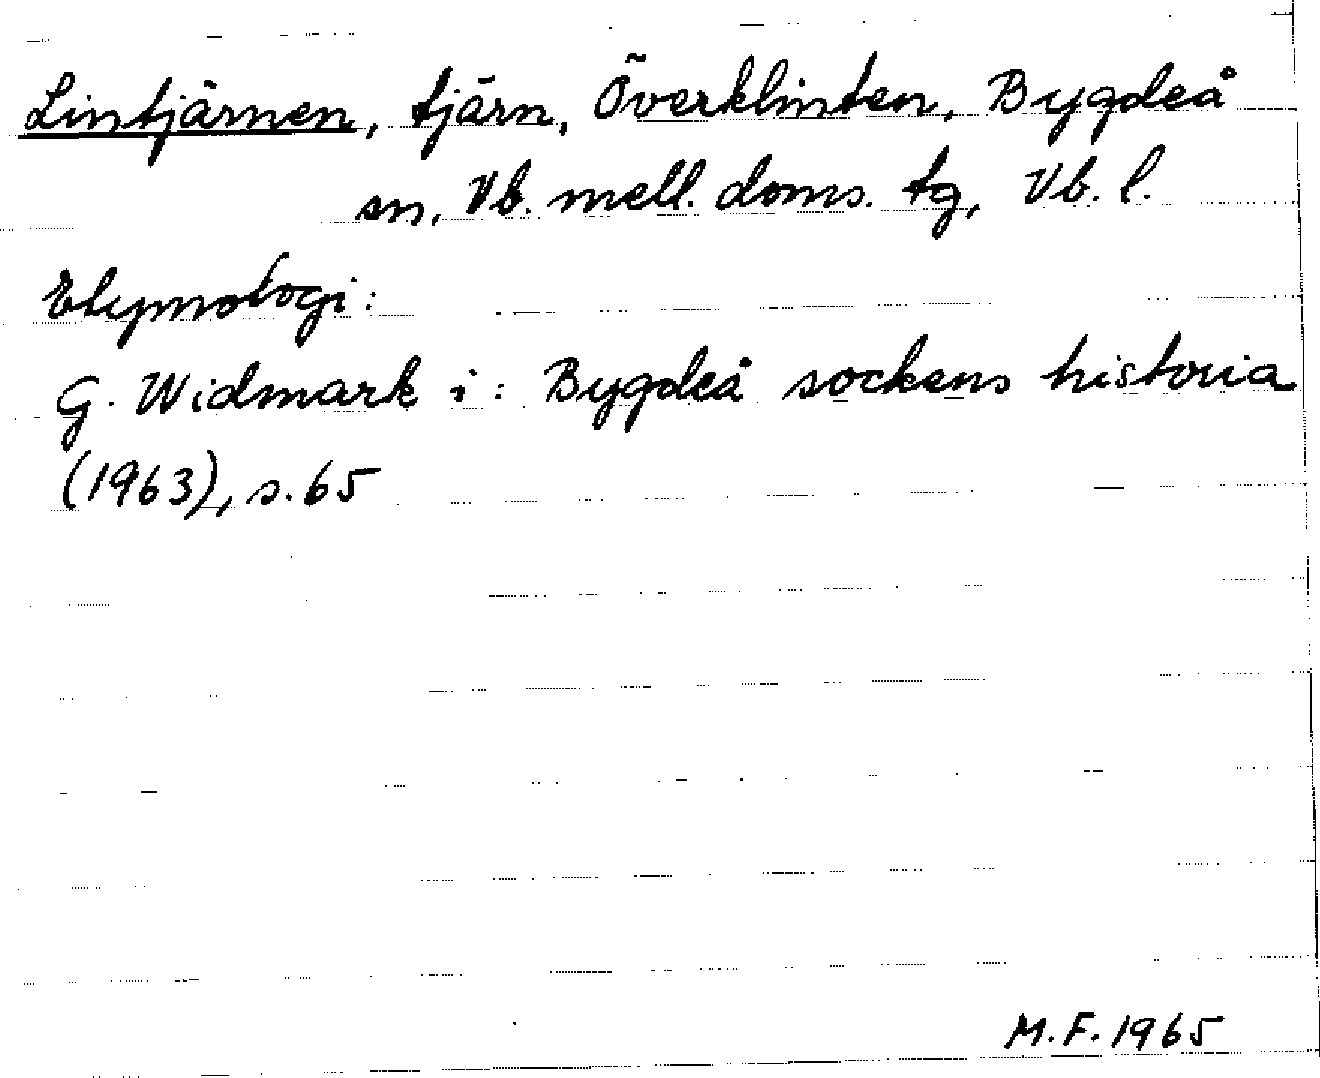 Lintjärnen, tjärn, Överklinten, Bygdeå
sn, Vb. mell. doms. tg, Vb. l.
Etymologi:
G. Widmark i: Bygdeå sockens historia
(1963), s. 65
M.F. 1965